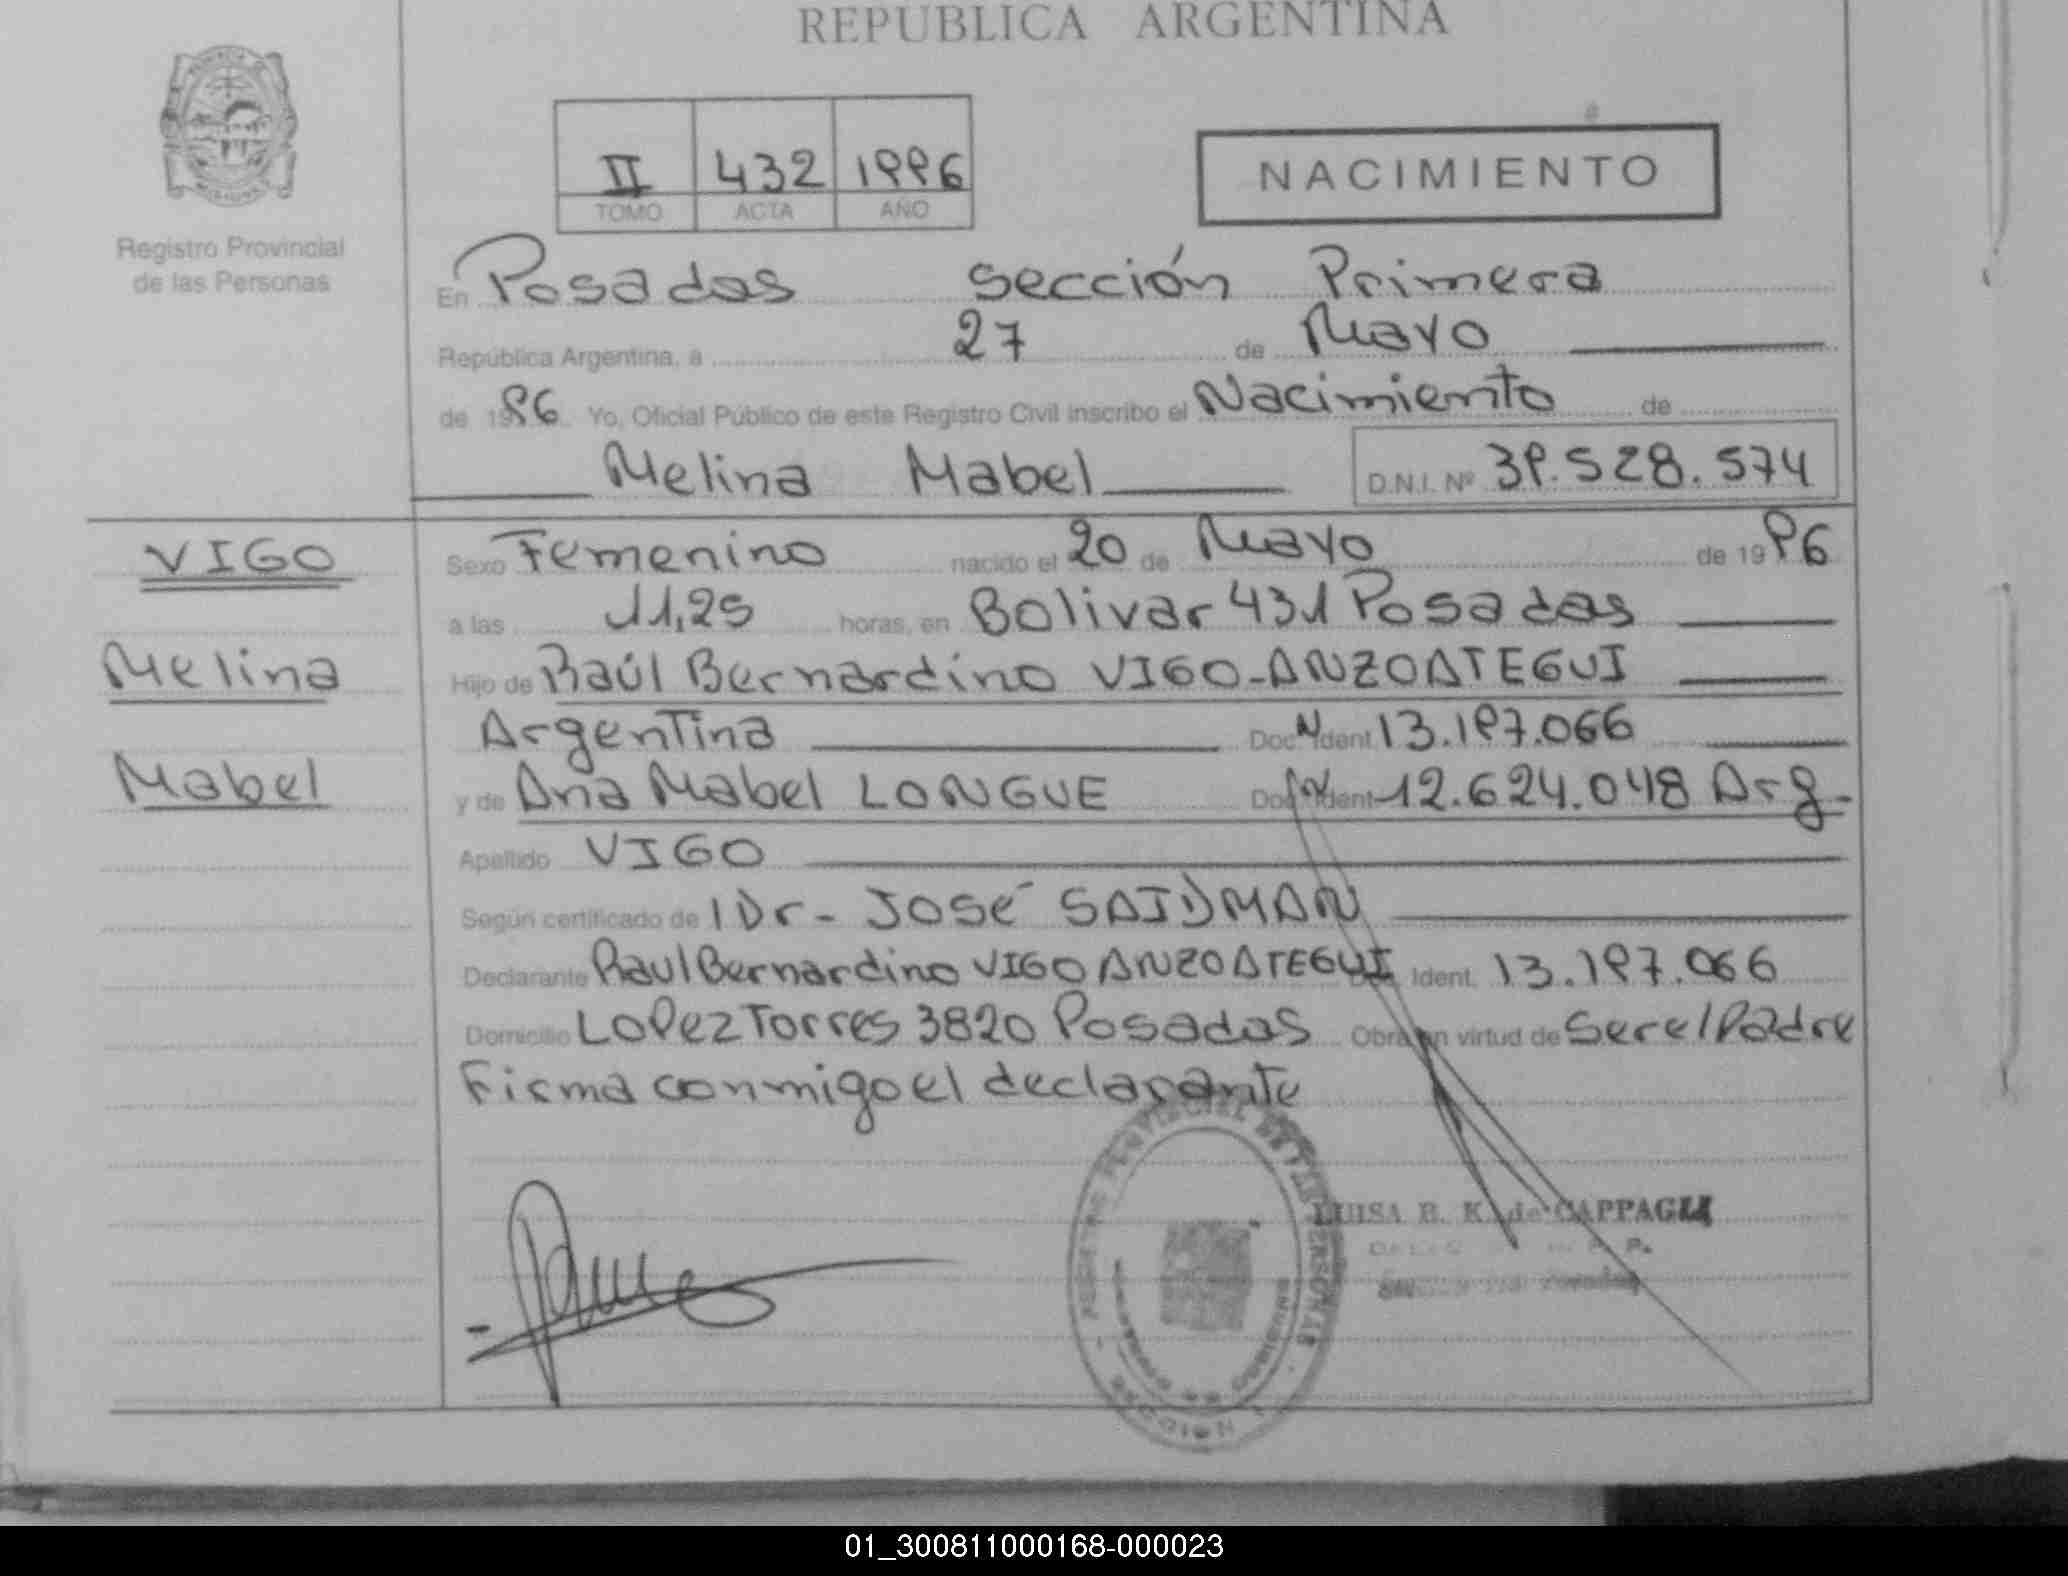 REPUBLICA ARGENTINA
II 432 1996
TOMO ACTA AÑO
NACIMIENTO
Registro Provincial
de las Personas
En Posadas sección Primera
República Argentina, a 27 de Mayo
de 1996 Yo, Oficial Público de este Registro Civil inscribo el Nacimiento de
Melina Mabel D.N.I. Nº 39.528.574
VIGO
Melina
Mabel
Sexo Femenino nacido el 20 de Mayo de 1996
a las 11,25 horas, en Bolivar 431 Posadas
Hijo de Raúl Bernardino VIGO-ANZOATEGUI
Argentina Doc. N Ident 13.197.066
y de Ana Mabel LONGUE Doc. N Ident 12.624.048 Arg.
Apellido VIGO
Según certificado de l Dr- JOSÉ SAIDMAN
Declarante Raul Bernardino VIGO ANZOATEGUI Doc. Ident. 13.197.066
Domicilio LOPez Torres 3820 Posadas Obra en virtud de Ser el Padre
Firma conmigo el declarante
REGISTRO PROVINCIAL DE LAS PERSONAS
MISIONES
LUISA B. K. de CAPPAGLI
01_300811000168-000023